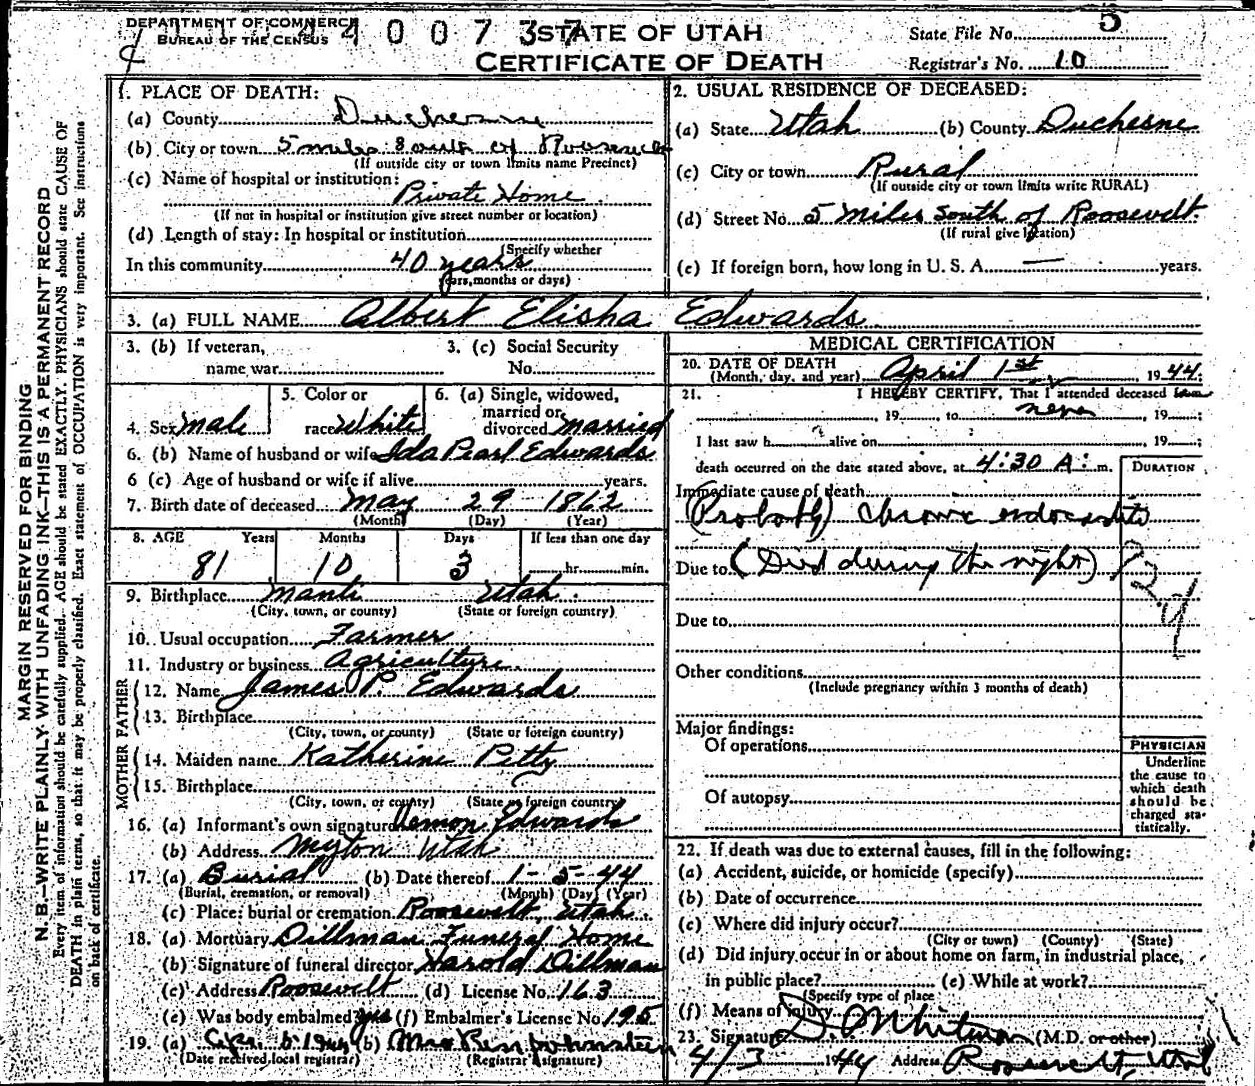 DEPARTMENT OF COMMERCE
BUREAU OF THE CENSUS
0 0 7 3 7
STATE OF UTAH
CERTIFICATE OF DEATH
State File No. 5
Registrar's No. 10
MARGIN RESERVED FOR BINDING
N. B.—WRITE PLAINLY WITH UNFADING INK—THIS IS A PERMANENT RECORD
Every item of information should be carefully supplied. AGE should be stated EXACTLY. PHYSICIANS should state CAUSE OF
DEATH in plain terms, so that it may be properly classified. Exact statement of OCCUPATION is very important. See instructions
on back of certificate.
1. PLACE OF DEATH:
(a) County Duchesne
(b) City or town 5 miles South of Roosevelt
(If outside city or town limits name Precinct)
(c) Name of hospital or institution:
Private Home
(If not in hospital or institution give street number or location)
(d) Length of stay: In hospital or institution
(Specify whether
In this community 40 years
years, months or days)
2. USUAL RESIDENCE OF DECEASED:
(a) State Utah (b) County Duchesne
(c) City or town Rural
(If outside city or town limits write RURAL)
(d) Street No. 5 Miles South of Roosevelt
(If rural give location)
(e) If foreign born, how long in U. S. A. — years.
3. (a) FULL NAME Albert Elisha Edwards
3. (b) If veteran,
name war
3. (c) Social Security
No.
4. Sex Male
5. Color or
race White
6. (a) Single, widowed,
married or
divorced Married
6. (b) Name of husband or wife Ida Pearl Edwards
6 (c) Age of husband or wife if alive years.
7. Birth date of deceased May 29 1862
(Month) (Day) (Year)
8. AGE Years Months Days If less than one day
81 10 3 hr. min.
9. Birthplace Manti Utah.
(City, town, or county) (State or foreign country)
10. Usual occupation Farmer
11. Industry or business Agriculture
FATHER
12. Name James P. Edwards
13. Birthplace
(City, town, or county) (State or foreign country)
MOTHER
14. Maiden name Katherine Petty
15. Birthplace
(City, town, or county) (State or foreign country)
16. (a) Informant's own signature Edwards
(b) Address Myton Utah
17. (a) Burial (b) Date thereof 1-5-44
(Burial, cremation, or removal) (Month) (Day) (Year)
(c) Place: burial or cremation Roosevelt, Utah.
18. (a) Mortuary Dillman Funeral Home
(b) Signature of funeral director Harold Dillman
(c) Address Roosevelt (d) License No. 163
(e) Was body embalmed? yes (f) Embalmer's License No. 195
19. (a) (b) Mrs
(Date received local registrar) (Registrar's signature)
MEDICAL CERTIFICATION
20. DATE OF DEATH
(Month, day, and year) April 1st, 1944.
21. I HEREBY CERTIFY, That I attended deceased from
19 to never 19
I last saw h ? alive on 19
death occurred on the date stated above, at 4:30 A. m.
DURATION
Immediate cause of death
(Probably) Chronic endocarditis
Due to (Died during the night)
Due to
Other conditions
(Include pregnancy within 3 months of death)
Major findings:
Of operations
Of autopsy
PHYSICIAN
Underline
the cause to
which death
should be
charged sta-
tistically.
22. If death was due to external causes, fill in the following:
(a) Accident, suicide, or homicide (specify)
(b) Date of occurrence
(c) Where did injury occur?
(City or town) (County) (State)
(d) Did injury occur in or about home on farm, in industrial place,
in public place? (e) While at work?
(Specify type of place
(f) Means of injury
23. Signature (M.D. or other)
4/3 1944 Address Roosevelt, Utah